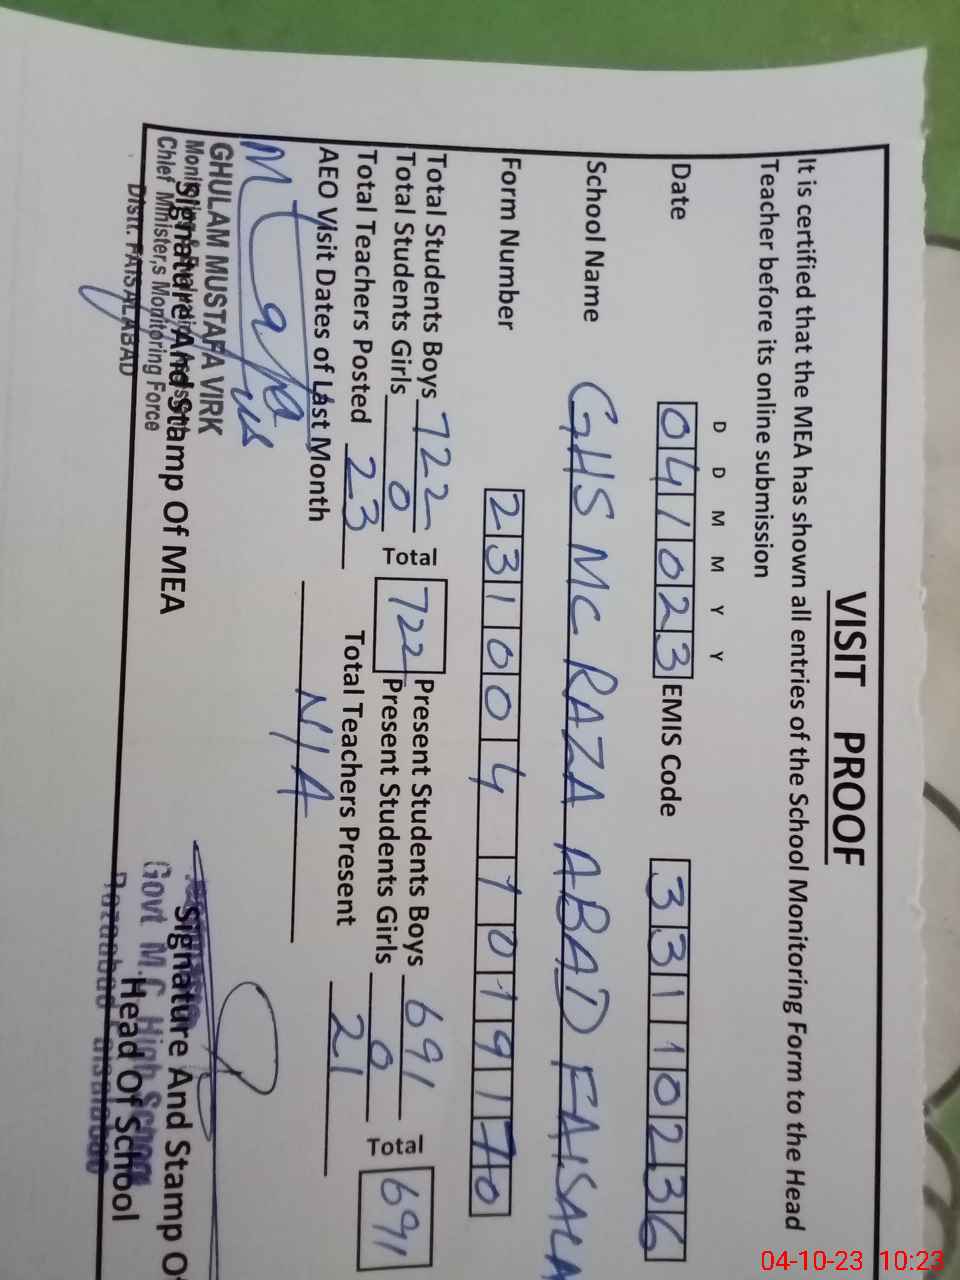 VISIT PROOF
It is certified that the MEA has shown all entries of the School Monitoring Form to the Head
Teacher before its online submission
D D M M Y Y
Date 041023 EMIS Code 33110236
School Name GHS MC RAZA ABAD FAISALA
Form Number 2310041019170
Total Students Boys 722 Total 722 Present Students Boys 691 Total 691
Total Students Girls 0 Present Students Girls 0
Total Teachers Posted 23 Total Teachers Present 21
AEO Visit Dates of Last Month N/A
GHULAM MUSTAFA VIRK
Chief Minister,s Monitoring Force
Distt. FAISALABAD
Signature And Stamp Of MEA
Signature And Stamp O
Head Of School
Govt M.C High School
04-10-23 10:23